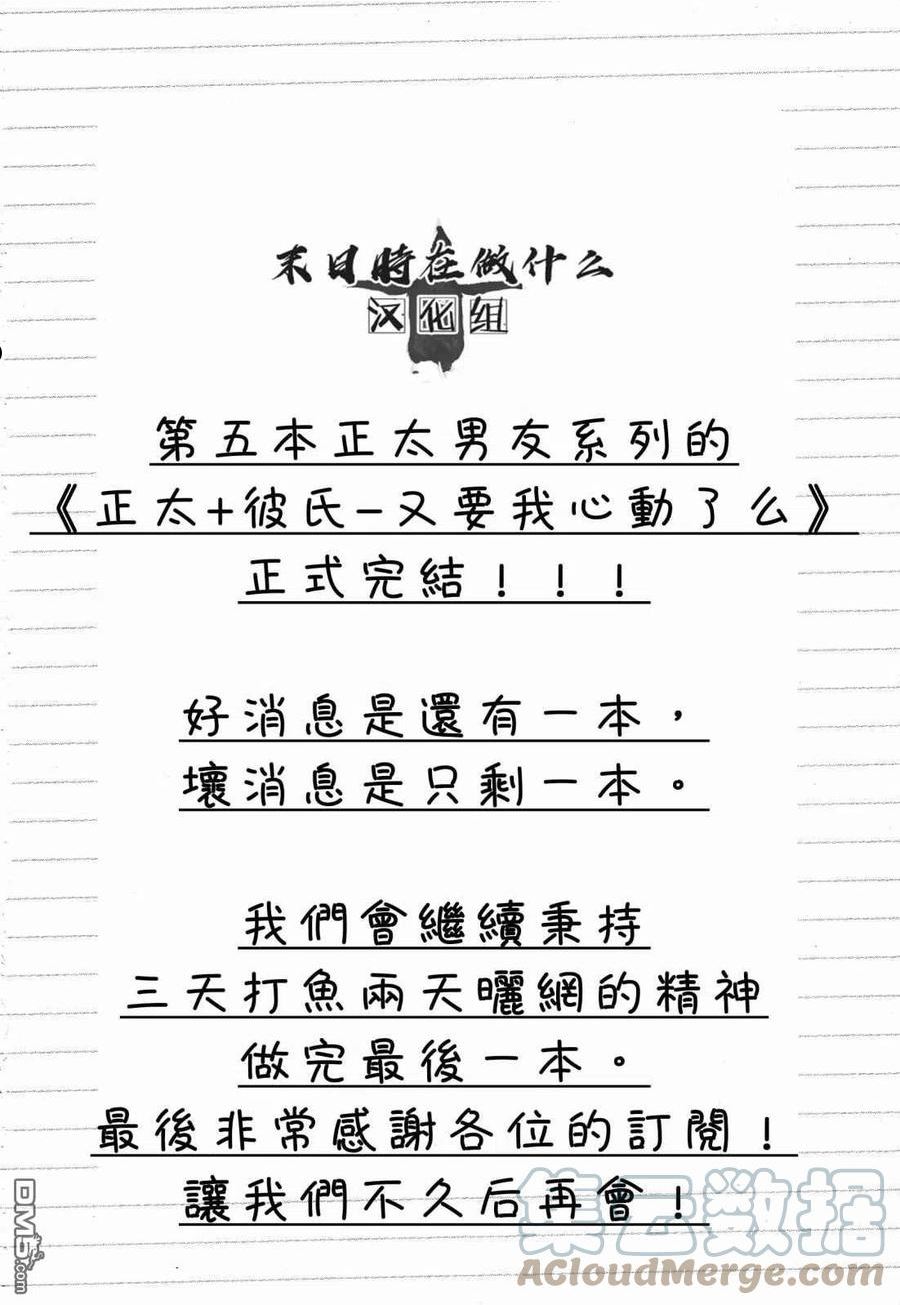 末日時在做什么
汉化组
第五本正太男友系列的
《正太+彼氏-又要我心動了么》
正式完結！！！
好消息是還有一本，
壞消息是只剩一本。
我們會繼續秉持
三天打魚兩天曬網的精神
做完最後一本。
最後非常感謝各位的訂閱！
讓我們不久后再會！
集云数据
ACloudMerge.com
DM5.com